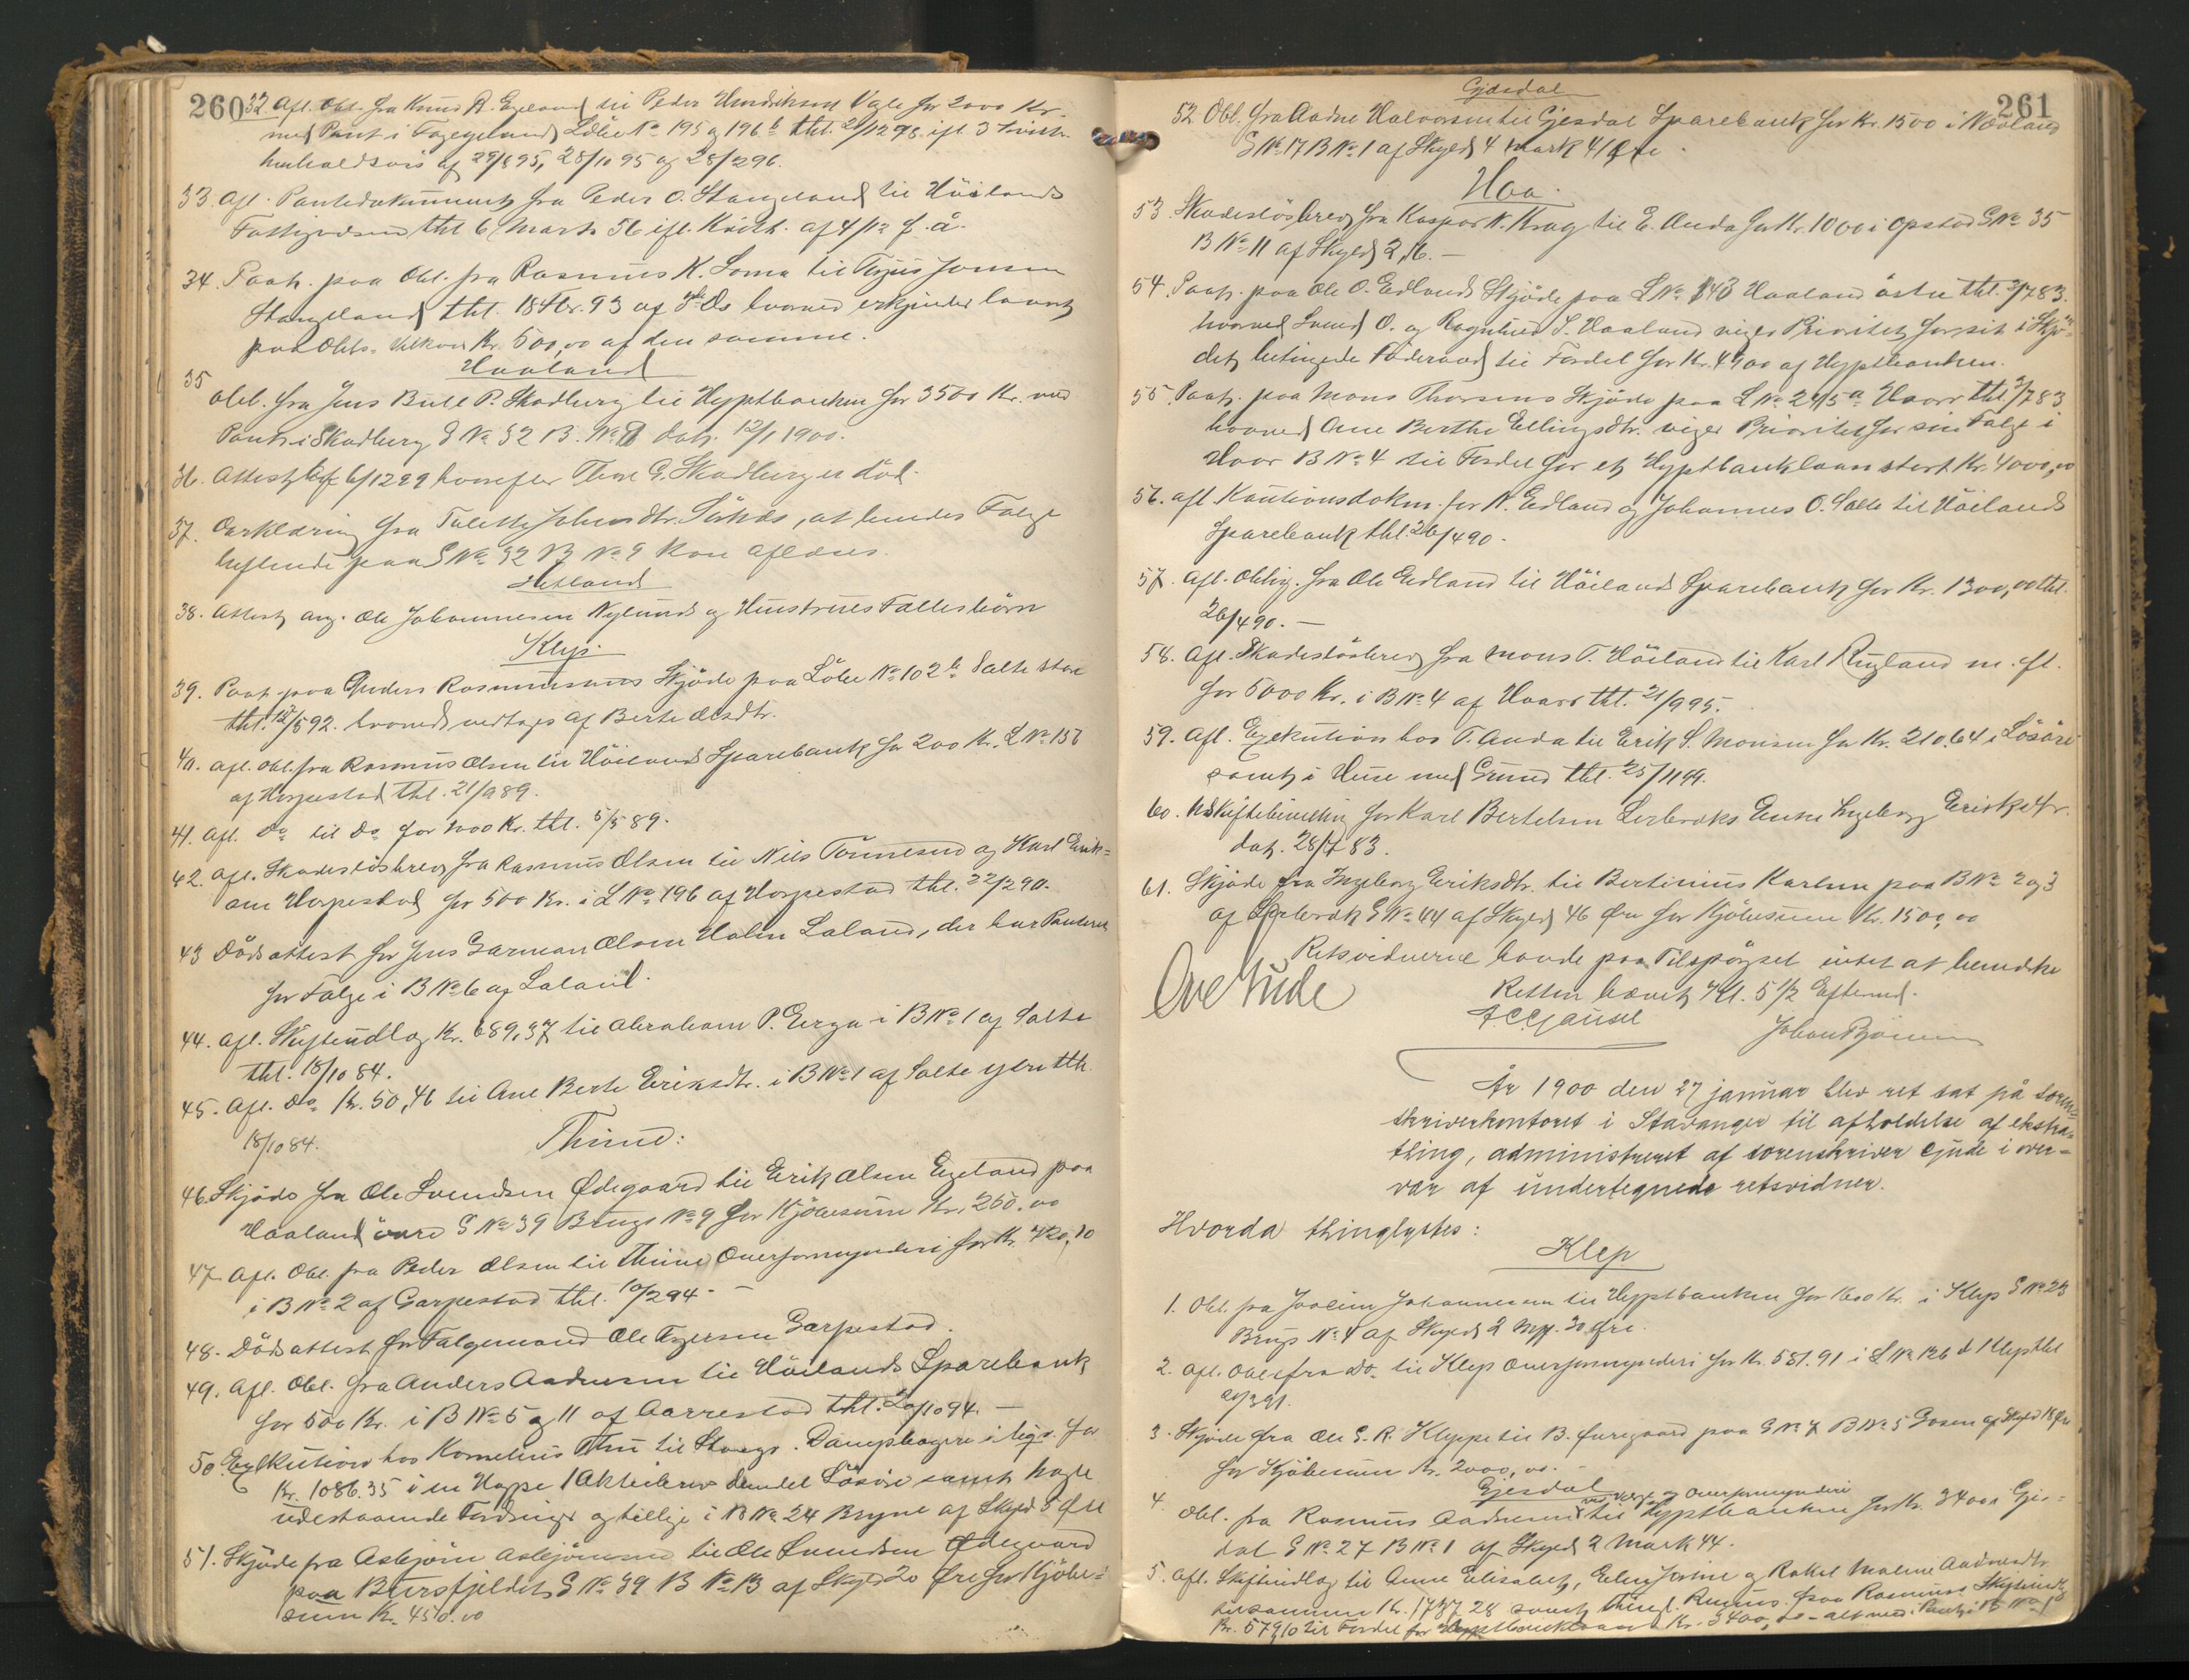 260
32 Afl. Obl. fra Knud R. Egeland til Peder Hendriksen Vagle for 2000 Kr.
med Pant i Egeland Løbe No 195 og 196 b thl. ifl. 3 Kvitt.
henholdsvis af 29/8 95, 28/10 95 og 28/2 96.
33. Afl. Pantedokument fra Peder O. Stangeland til Höilands
Fattigvæsen thl 6 Marts 56 ifl. Kvitt. af 4/12 f. å.
34. Paat. paa Obl. fra Rasmus K. Soma til Tøjus Jonsen
Stangeland thl. 18 Fbr. 93 af hvorved erkjendes laant
paa Obls. Vilkaar Kr. 500,00 af den samme.
Haaland
35
Obl. fra Jens Bull P. Skadberg til Hyptbanken for 3500 Kr. med
Pant i Skadberg G No 32 B. No 8 dat. 12/1 1900.
36. Attest af 6/12 99 hvorefter Thore G. Skadberg er död.
37. Erklæring fra Talette Johnsdtr. Sörnes, at hendes Folge
heftende paa G No 32 B No 9 kan aflæses.
Hetland
38. Attest ang. Ole Johannesen Nylunds og Hustrues Fællesbörn
Klep.
39. Paat. paa Guders Rasmussens Skjöde paa Löbe No 102 b Salte store
thl. 12/5 92. hvorved vedtages af Berte Olsdtr.
40. Afl. Obl. fra Rasmus Olsen til Höilands Sparebank for 200 Kr. L No 156
af Horpestad thl. 21/9 89.
41. Afl. Do til Do for 1000 Kr. thl. 5/5 89.
42. Afl. Skadeslösbrev fra Rasmus Olsen til Nils Tönnesen og Karl Erik-
sen Horpestad for 500 Kr. i L No 196 af Horpestad thl. 22/2 90.
43 Dödsattest for Jens Garman Olsen Halen Laland, der har Panteret
for Folge i B No 6 af Laland.
44. Afl. Skifteudlæg Kr. 689,37 til Abraham P. Erga i B No 1 af Salte
thl. 18/10 84.
45. Afl. Do Kr. 50,46 til Ane Berte Eriksdtr. i B No 1 af Salte ytre thl.
18/10 84.
Thime:
46. Skjöde fra Ole Svendsen Ödegaard til Erik Olsen Egeland paa
Haaland övre G No 39 Brugs No 9 for Kjöbesum Kr. 260,00
47. Afl. Obl. fra Peder Olsen til Thime Overformynderi for Kr. 420,10
i B No 2 af Garpestad thl. 10/2 94. —
48. Dödsattest for Folgemand Ole Tngersen Garpestad.
49. Afl. Obl. fra Anders Aadnesen til Höilands Sparebank
for 500 Kr. i B No 5 og 11 af Aarrestad thl. 20/10 94. —
50. Exekution hos Kornelius Thu til Stavgs. Dampbageri i liqs. for
Kr. 1086.35 i en Hoppe 1 Aktiebrev Løsöre samt nogle
udestaaende Fordringer og tillige i B No 24 Bryne af Skyld 5 Öre
51. Skjöde fra Asbjörn Asbjörnsen til Ole Svendsen Ödegaard
paa Buersfjeldet G No 39 B No 13 af Skyld 20 Öre for Kjöbe-
sum Kr. 450.00
261
Gjæsdal
52 Obl. fra Aadne Halvorsen til Gjesdal Sparebank for Kr. 1500 i Nævland
G No 17 B No 1 af Skyld 4 Mark 41 Öre.
Haa.
53. Skadeslösbrev fra Kasper N. Krag til E. Anda for Kr. 1000 i Opstad G No 35
B No 11 af Skyld 2,16. —
54. Paat. paa Ole O. Edlands Skjöde paa L No 143 Haaland östre thl. 3/7 83.
hvorved Svend O. og Ragnhild S. Haaland viger Prioritet for sit i Skjö-
det betingede Föderaad til Fordel for Kr. 4900 af Hyptbanken.
55. Paat. paa Mons Thorsens Skjöde paa L No 245 a Haarr thl. 3/7 83
hvorved Ane Berthe Ellingsdtr. viger Prioritet for sin Folge i
Haar B No 4 til Fordel for et Hyptbanklaan stort Kr. 4000,00
56. Afl Kautionsdokm. for N. Edland og Johannes O. Salte til Höilands
Sparebank thl. 26/4 90.
57. Afl. Oblig. fra Ole Edland til Höilands Sparebank for Kr. 1300,00 thl.
26/4 90. —
58. Afl. Skadeslösbrev fra Mons T. Höiland til Karl Rugland m. fl.
for 5000 Kr. i B No 4 af Haarr thl. 21/9 95.
59. Afl. Exekution hos T. Anda til Erik S. Monsen for Kr. 210.64 i Lösöre
samt i Huse med Grund thl. 25/11 99.
60. Uskiftebevilling for Karl Bertelsen Lerbræks Enke Ingeborg Eriksdtr.
dat. 28/7 83.
61. Skjöde fra Ingeborg Eriksdtr. til Bertinius Karlsen paa B No 2 og 3
af Lerbræk G No 44 af Skyld 46 Öre for Kjöbesum Kr. 1500,00
Retsvidnerne havde paa Tilspörgsel intet at bemærke
Retten hævet Kl. 5 1/2 Efterm.
Ove Gude
A. C. Gausel
Johan Bjönnes
År 1900 den 27 januar blev ret sat på soren-
skriverkontoret i Stavanger til afholdelse af ekstra-
thing, administreret af sorenskriver Gude i over-
vær af undertegnede retsvidner.
Hvorda thinglystes:
Klep
1. Obl. fra Joacim Johannesen til Hyptbanken for 1600 Kr. i Klep G No 23
Brugs No 4 af Skyld 2 Mrk. 30 Öre.
2. Afl. Obl. fra Do. til Klep Overformynderi for Kr. 581.91 i L No 126 d Klep thl
3. Skjöde fra Ole S. R. Kleppe til B. Furegaard paa G No 7 B No 5 Gosen af Skyld 18 Öre
for Kjöbesum Kr. 2000,00. —
Gjesdal
ved Verge og Overformynderi
4. Obl. fra Rasmus Aadnesen til Hyptbanken for Kr. 3400 i Gjes-
dal G No 27 B No 1 af Skyld 2 Mark 44.
5. Afl. Skifteudlæg til Anne Elisabet, Elen Jorine og Rakel Malene Aadnesdtr.
tilsammen Kr. 1737.28 samt Rasmus Skifteudlg
Kr. 579,10 til Fordel for Hyptbanklaan Kr. 3400,00 – alt med Pant i B No 1